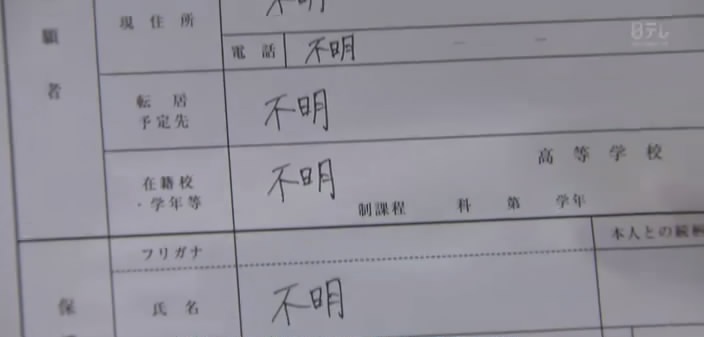 不明
現住所
日テレ
電話 不明
願者
転居予定先 不明
高等学校
在籍校・学年等 不明
制課程 科 第 学年
フリガナ
本人との続柄
保
氏名 不明